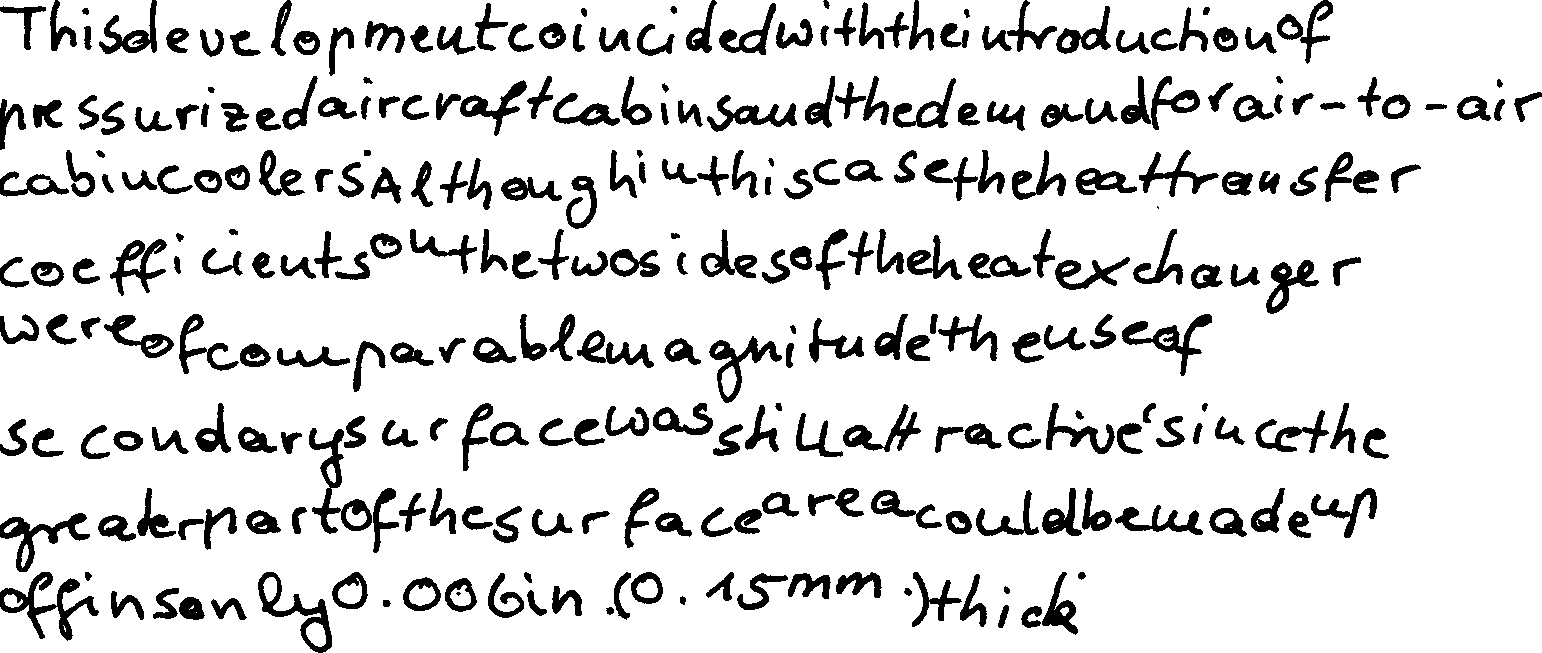 This development coincided with the introduction of
pressurized aircraft cabins and the demand for air-to-air
cabin coolers. Although in this case the heat transfer
coefficients on the two sides of the heat exchanger
were of comparable magnitude, the use of
secondary surface was still attractive, since the
greater part of the surface area could be made up
of fins only 0.006 in. (0.15 mm.) thick